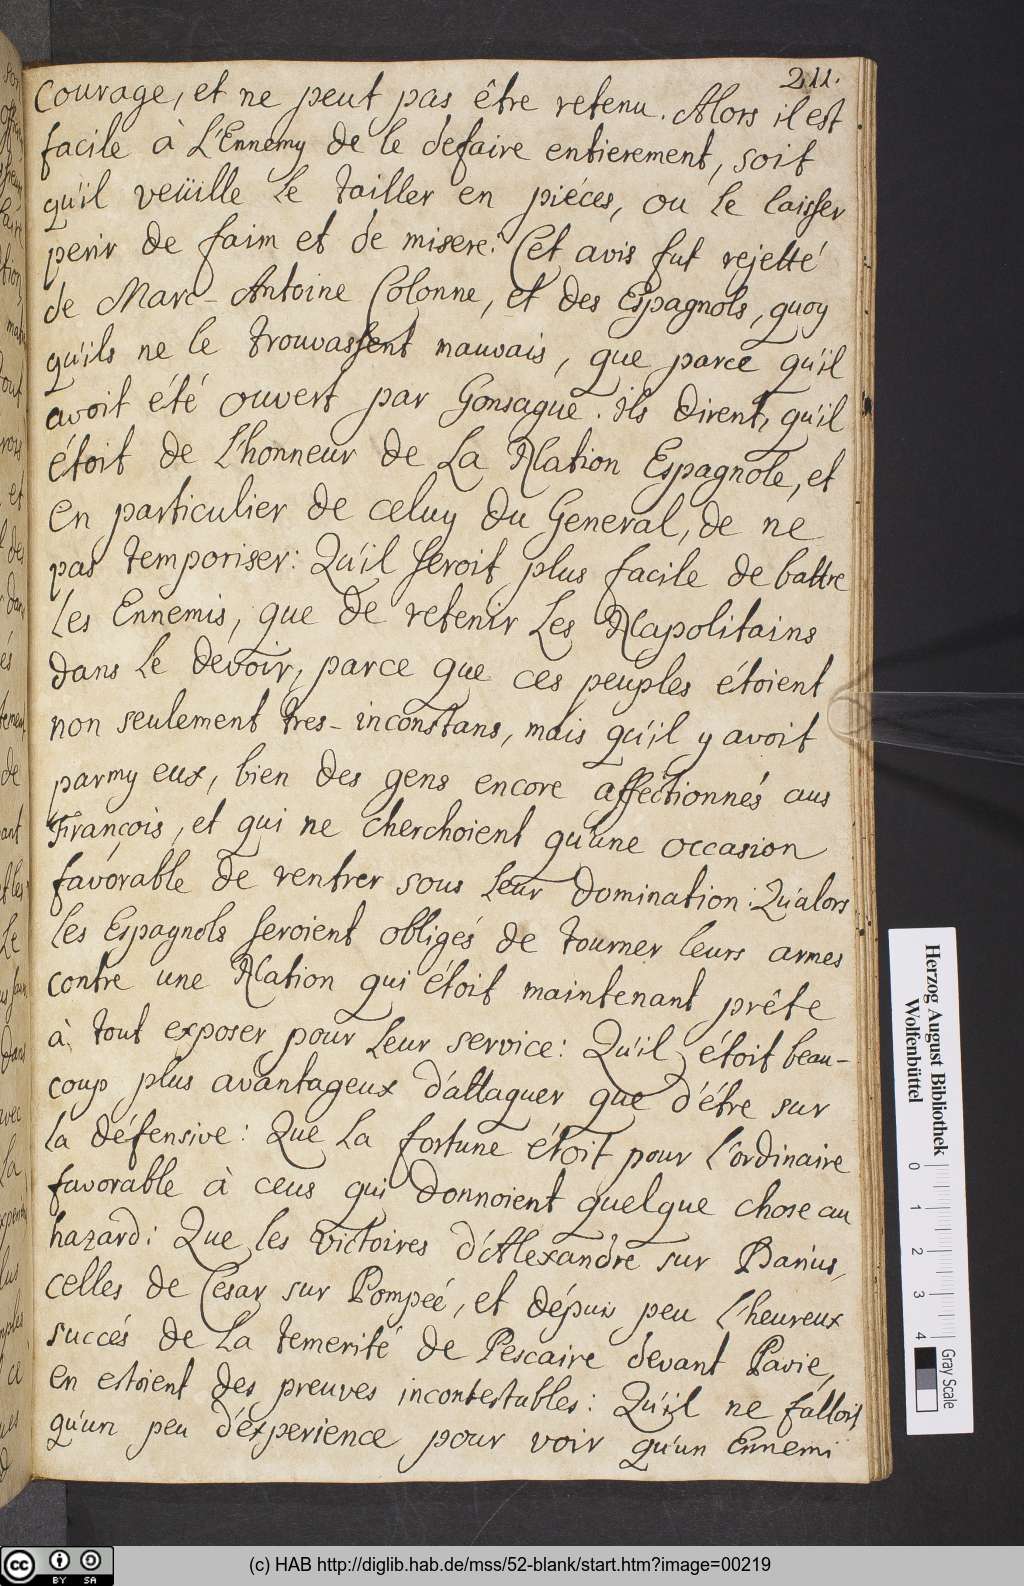 211.
Courage, et ne peut pas être retenu. Alors il est
facile à L'Ennemy de le defaire entierement, soit
qu'il veüille Le tailler en piéces, ou le laisser
perir de faim et de misere. Cet avis fut rejetté
de Marc-Antoine Colonne, et des Espagnols, quoy
qu'ils ne le trouvassent mauvais, que parce qu'il
avoit été ouvert par Gonsague. Ils dirent, qu'il
étoit de L'honneur de La Nation Espagnole, et
en particulier de celuy du General, de ne
pas temporiser: Qu'il seroit plus facile de battre
Les Ennemis, que de retenir Les Napolitains
dans Le devoir, parce que ces peuples étoient
non seulement tres-inconstans, mais qu'il y avoit
parmy eux, bien des gens encore afféctionnés aus
François, et qui ne cherchoient qu'une occasion
favorable de rentrer sous Leur Domination: Qu'alors
les Espagnols seroient obligés de tourner leurs armes
contre une Nation qui étoit maintenant prête
à tout exposer pour Leur service: Qu'il étoit beau-
coup plus avantageux d'attaquer que d'étre sur
La défensive: Que La fortune étoit pour l'ordinaire
favorable à ceus qui donnoient quelque chose au
hazard: Que les victoires d'Alexandre sur Darius,
celles de Cesar sur Pompeé, et dépuis peu l'heureux
succés de La temerité de Pescaire devant Pavie,
en estoient des preuves incontestables: Qu'il ne falloit
qu'un peu d'experience pour voir qu'un Ennemi
Herzog August Bibliothek
Wolfenbüttel
0 1 2 3 4
Gray Scale
cc BY SA
(c) HAB http://diglib.hab.de/mss/52-blank/start.htm?image=00219